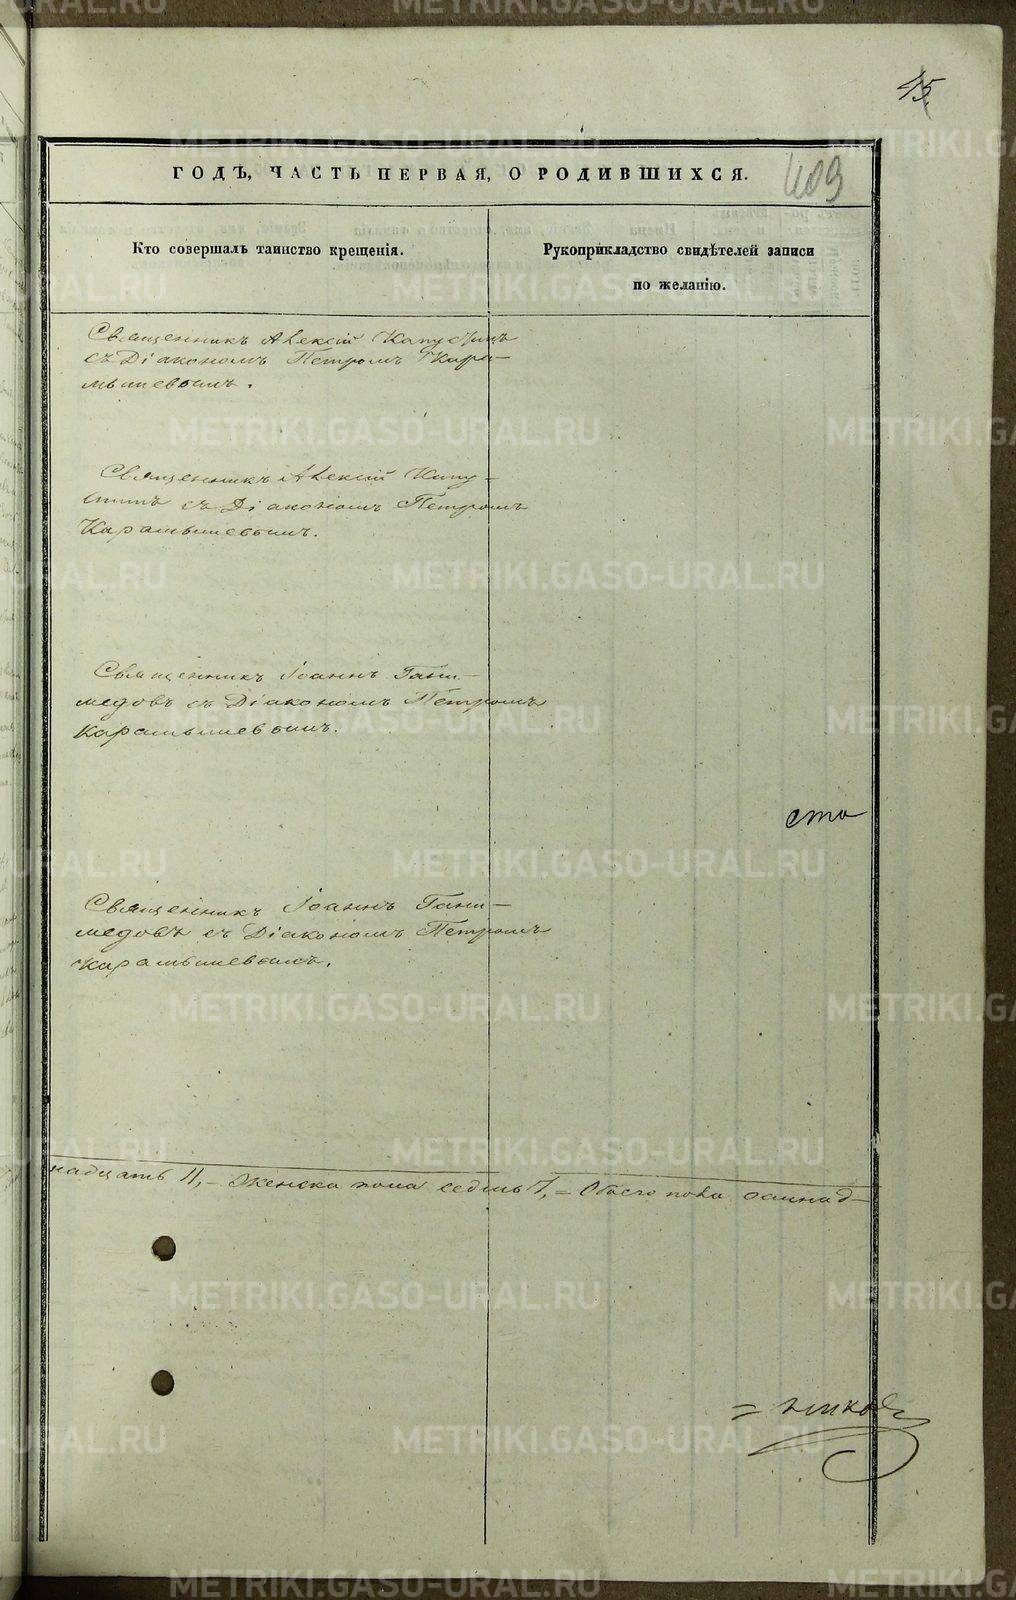 45.
ГОДЪ, ЧАСТЬ ПЕРВАЯ, О РОДИВШИХСЯ.
409
Кто совершалъ таинство крещенія.
Рукоприкладство свидѣтелей записи
по желанію.
Священникъ Алексій Капустинъ
съ Діакономъ Петромъ Кара-
мышевымъ.
Священникъ Алексій Капу-
стинъ съ Діакономъ Петромъ
Карамышевымъ.
Священникъ Іоаннъ Гани-
медовъ съ Діакономъ Петромъ
Карамышевымъ.
сто
Священникъ Іоаннъ Гани-
медовъ съ Діакономъ Петромъ
Карамышевымъ.
надцать 11, – Женска пола седмь 7, = Обоего пола осмнад-
METRIKI.GASO-URAL.RU